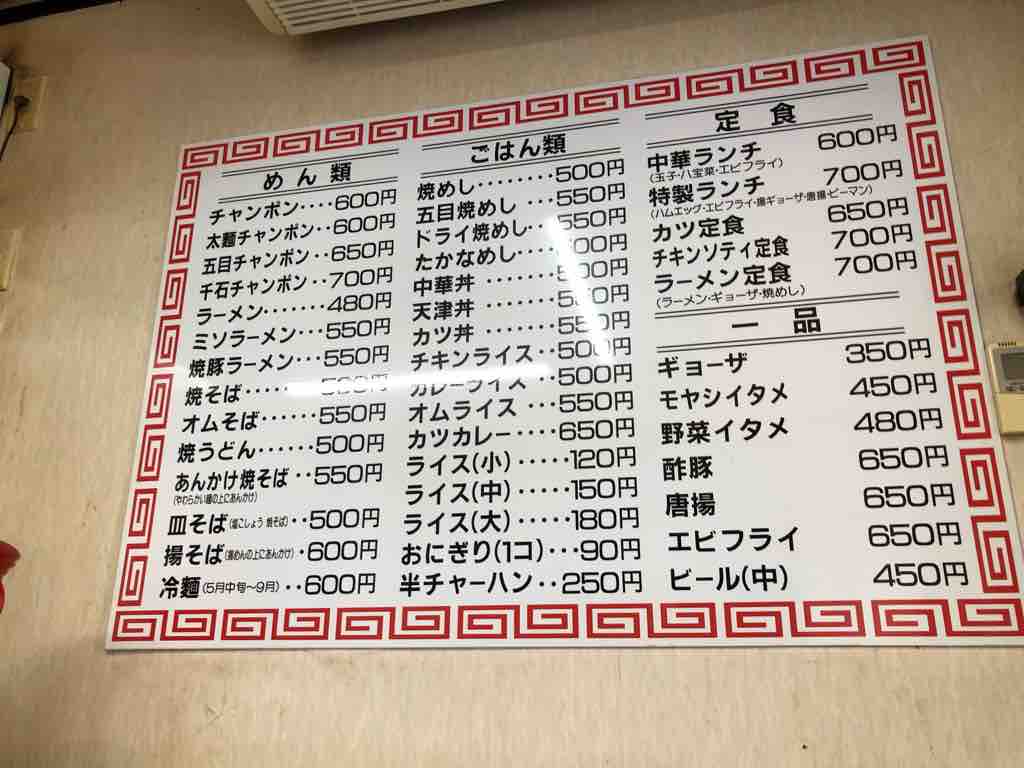 めん類
チャンポン････600円
太麺チャンポン･･600円
五目チャンポン･･650円
千石チャンポン･･700円
ラーメン･･･････480円
ミソラーメン･･･550円
焼豚ラーメン･･･550円
焼そば･････
オムそば･････550円
焼うどん･･････500円
あんかけ焼そば･･550円
(やわらかい麺の上にあんかけ)
皿そば(塩こしょう 焼そば)･･500円
揚そば(揚めんの上にあんかけ)･600円
冷麺(5月中旬～9月)･･600円
ごはん類
焼めし････････500円
五目焼めし･･･550円
ドライ焼めし･･550円
たかなめし･･
中華丼･･
天津丼･･
カツ丼･･･550円
チキンライス･･500円
カレーライス･･･500円
オムライス･･･550円
カツカレー････650円
ライス(小)･････120円
ライス(中)･････150円
ライス(大)･････180円
おにぎり(1コ)･･･90円
半チャーハン･･250円
定食
中華ランチ 600円
(玉子･八宝菜･エビフライ)
特製ランチ 700円
(ハムエッグ･エビフライ･揚ギョーザ･唐揚･ピーマン)
カツ定食 650円
チキンソティ定食 700円
ラーメン定食 700円
(ラーメン･ギョーザ･焼めし)
一品
ギョーザ 350円
モヤシイタメ 450円
野菜イタメ 480円
酢豚 650円
唐揚 650円
エビフライ 650円
ビール(中) 450円